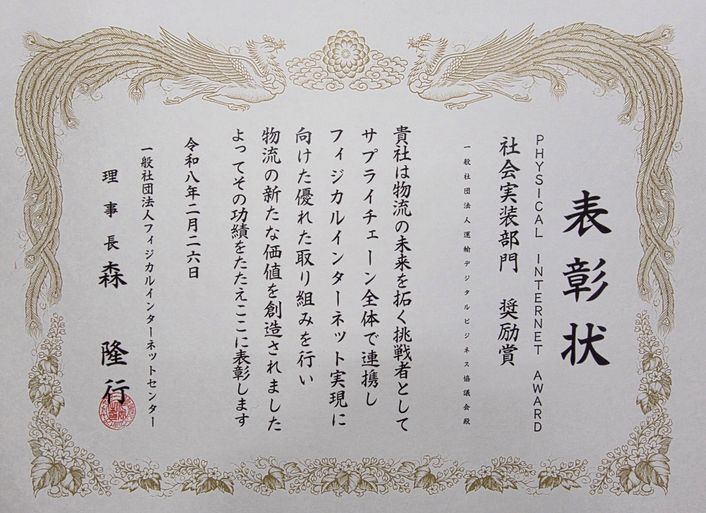 表彰状
PHYSICAL INTERNET AWARD
社会実装部門 奨励賞
一般社団法人運輸デジタルビジネス協議会殿
貴社は物流の未来を拓く挑戦者として
サプライチェーン全体で連携し
フィジカルインターネット実現に
向けた優れた取り組みを行い
物流の新たな価値を創造されました
よってその功績をたたえここに表彰します
令和八年二月二六日
一般社団法人フィジカルインターネットセンター
理事長 森 隆行